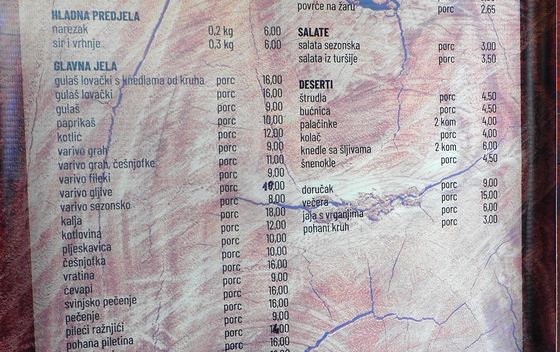 HLADNA PREDJELA
narezak 0,2 kg 6.00
sir i vrhnje 0,3 kg 6.00
GLAVNA JELA
gulaš lovački s knedlama od kruha porc 16.00
gulaš lovački porc 16.00
gulaš porc 9.00
paprikaš porc 10.00
kotlić porc 12.00
varivo grah porc 9.00
varivo grah, češnjofke porc 11.00
varivo fileki porc 9.00
varivo gljive porc 10.00
varivo sezonsko porc 8.00
kalja porc 18.00
kotlovina porc 12.00
pljeskavica porc 10.00
češnjofka porc 10.00
vratina porc 16.00
ćevapi porc 16.00
svinjsko pečenje porc 16.00
pečenje porc 9.00
pileći ražnjići porc
pohana piletina porc 16.00
povrće na žaru porc 2.65
SALATE
salata sezonska porc 3.00
salata iz turšije porc 3.50
DESERTI
štrudla porc 4.50
bućnica porc 4.50
palačinke 2 kom 4.00
kolač porc 4.00
knedle sa šljivama 2 kom 6.00
šnenokle porc 4.50
doručak porc 9.00
večera porc 15.00
jaja s vrganjima porc 6.00
pohani kruh porc 3.00